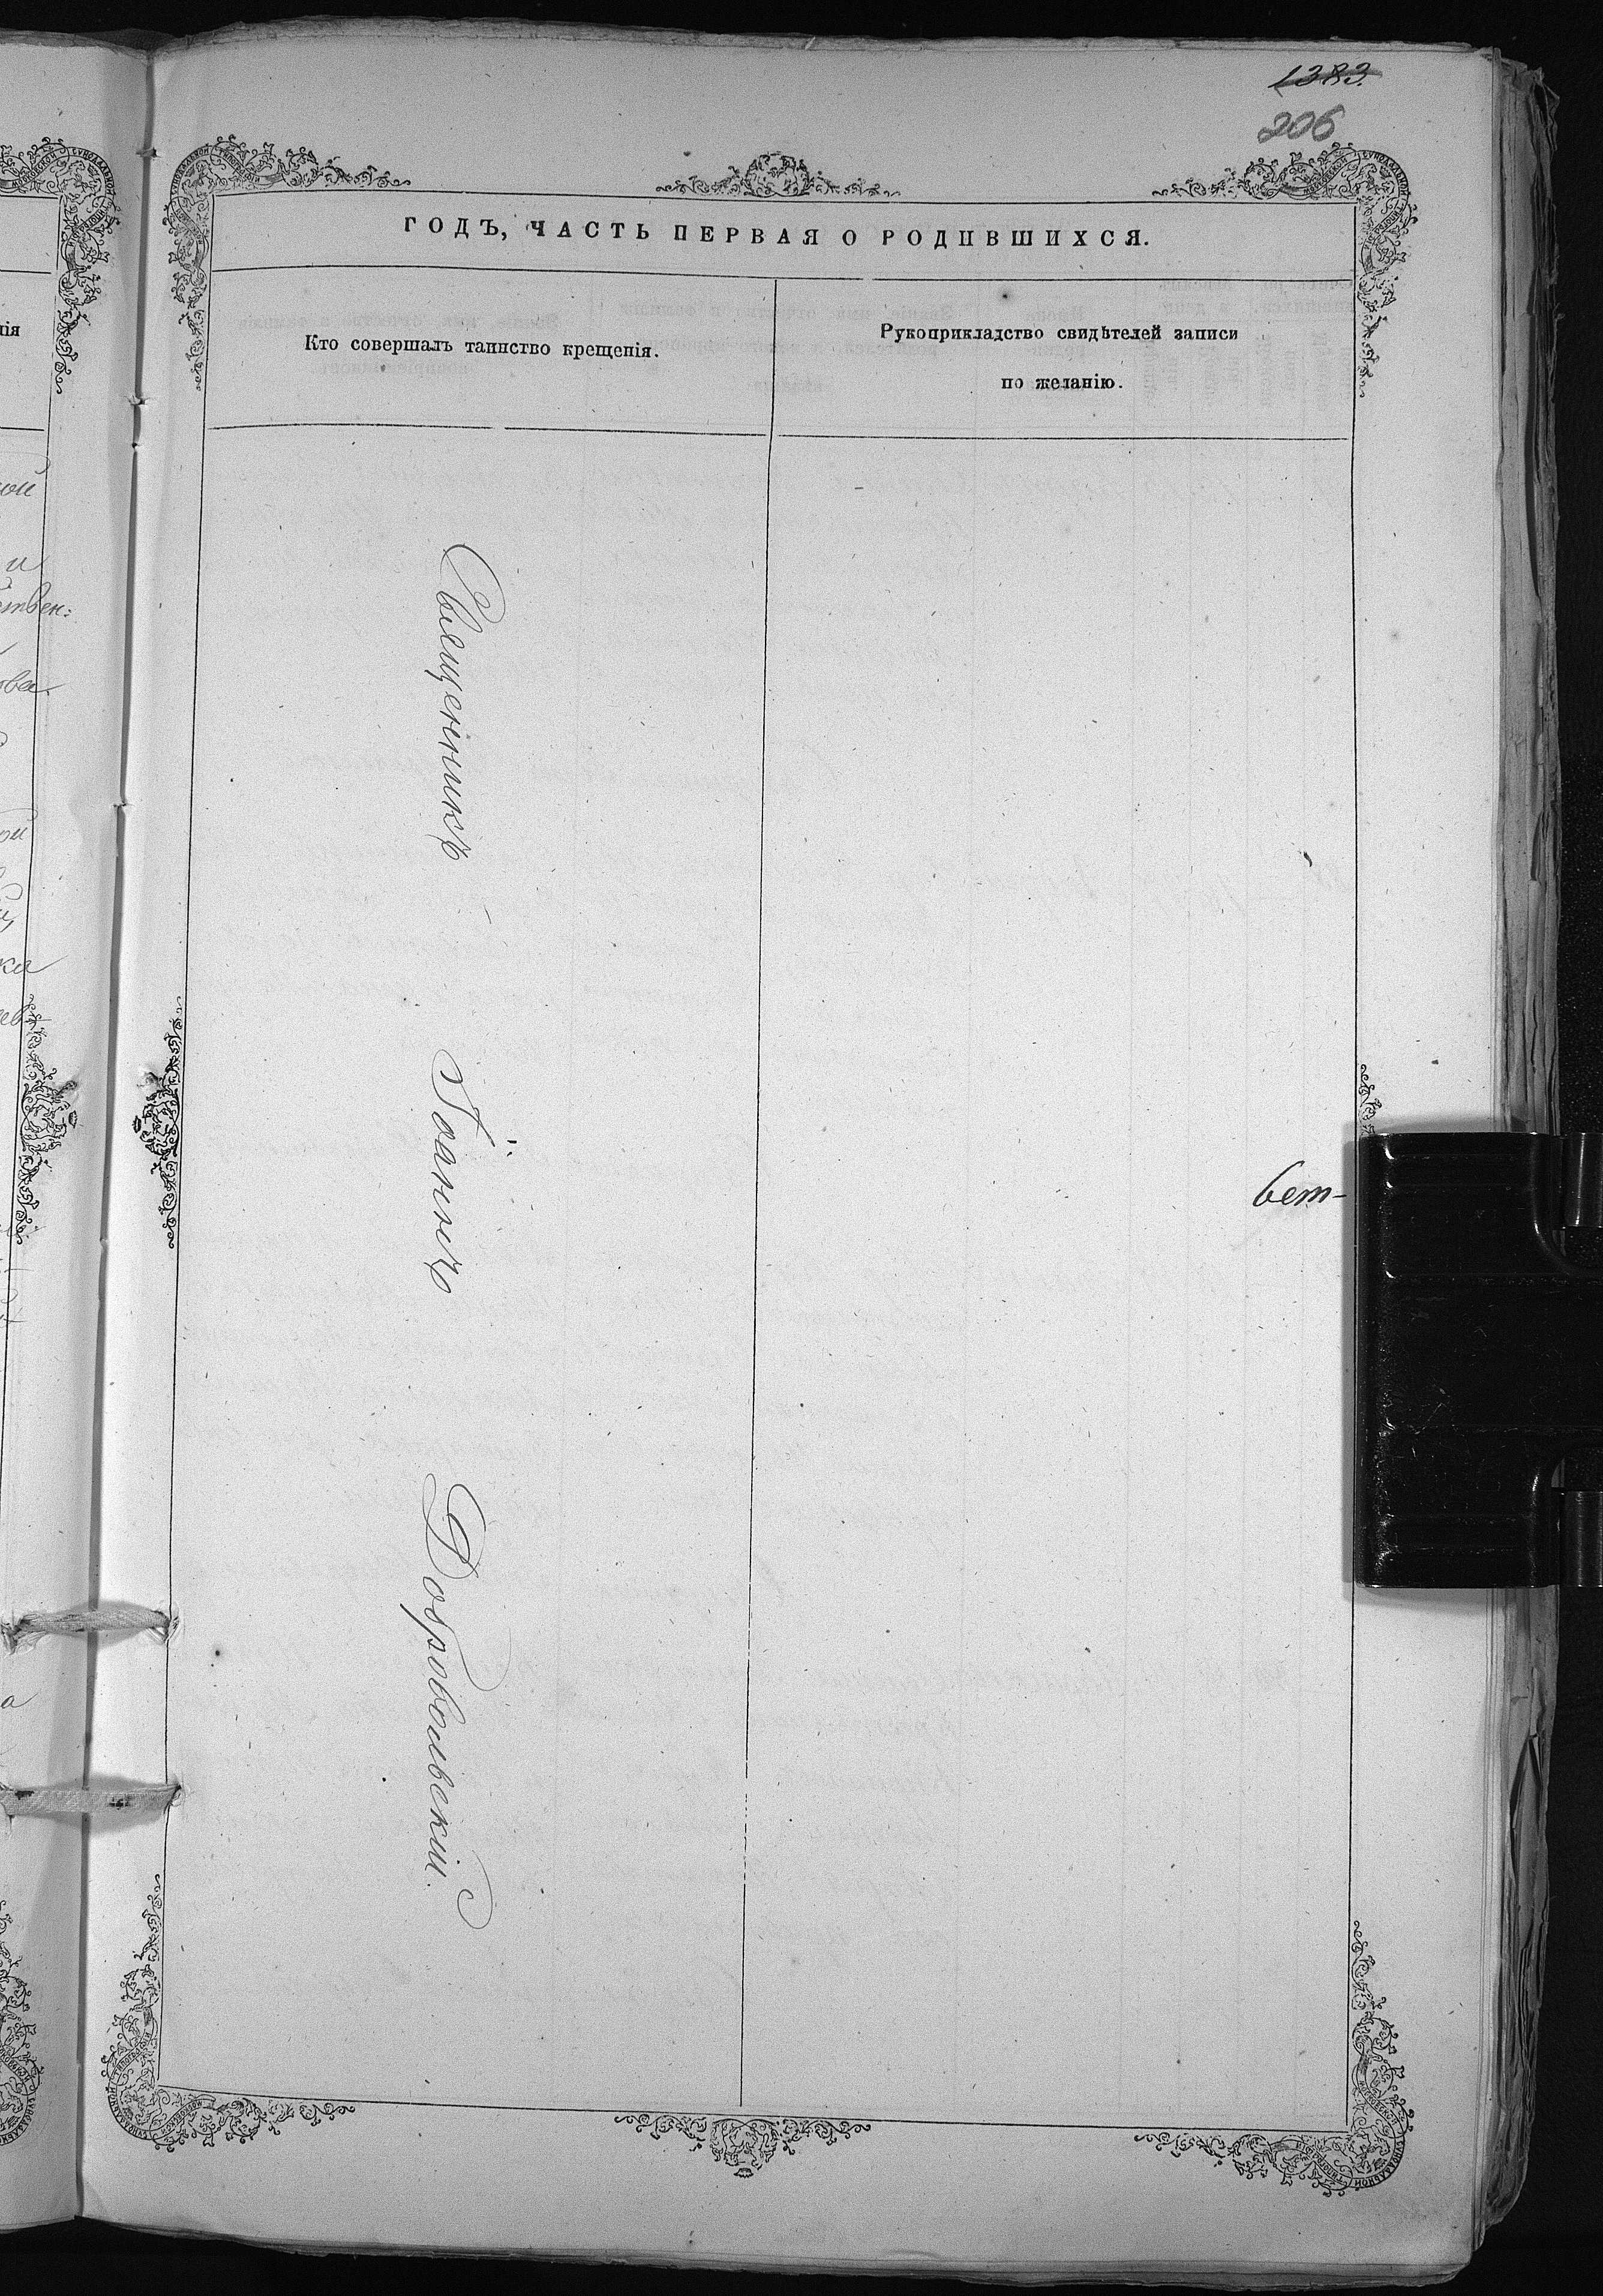 1383.
206
ГОДЪ, ЧАСТЬ ПЕРВАЯ О РОДИВШИХСЯ.
Кто совершалъ таинство крещенія.
Рукоприкладство свидѣтелей записи
по желанію.
Священникъ Іоаннъ Добровольскій.
вет-
ой
и
ствен:
ова
ой
ка
а